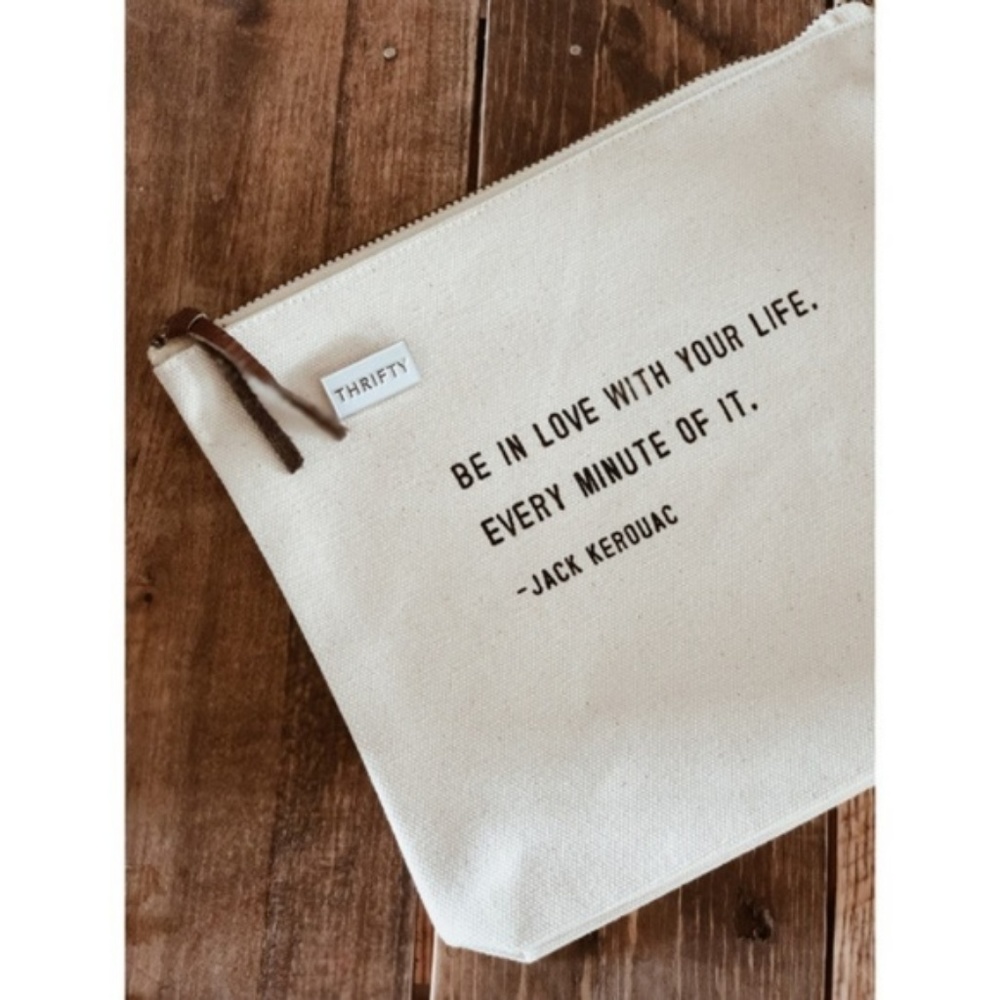 THRIFTY
BE IN LOVE WITH YOUR LIFE.
EVERY MINUTE OF IT.
-JACK KEROUAC